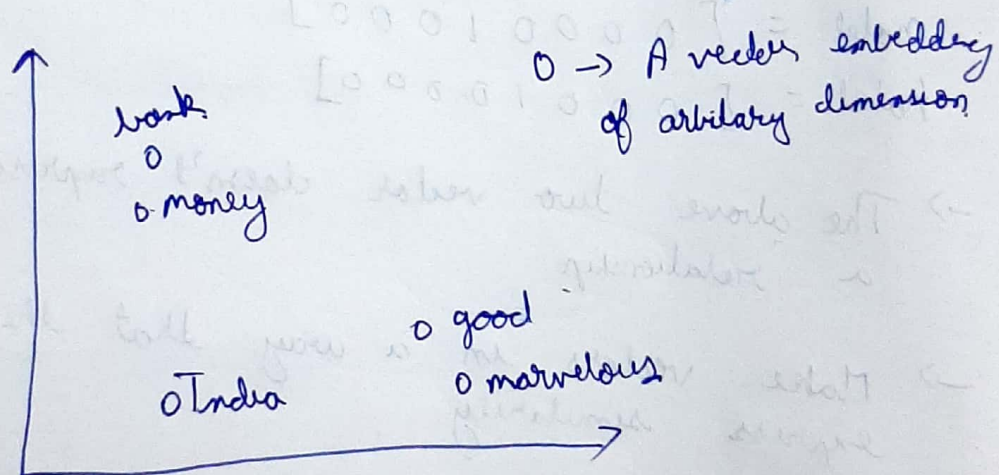 O → A vector embedding
of arbitary dimension
bank
o
o money
o good
o marvelous
o India